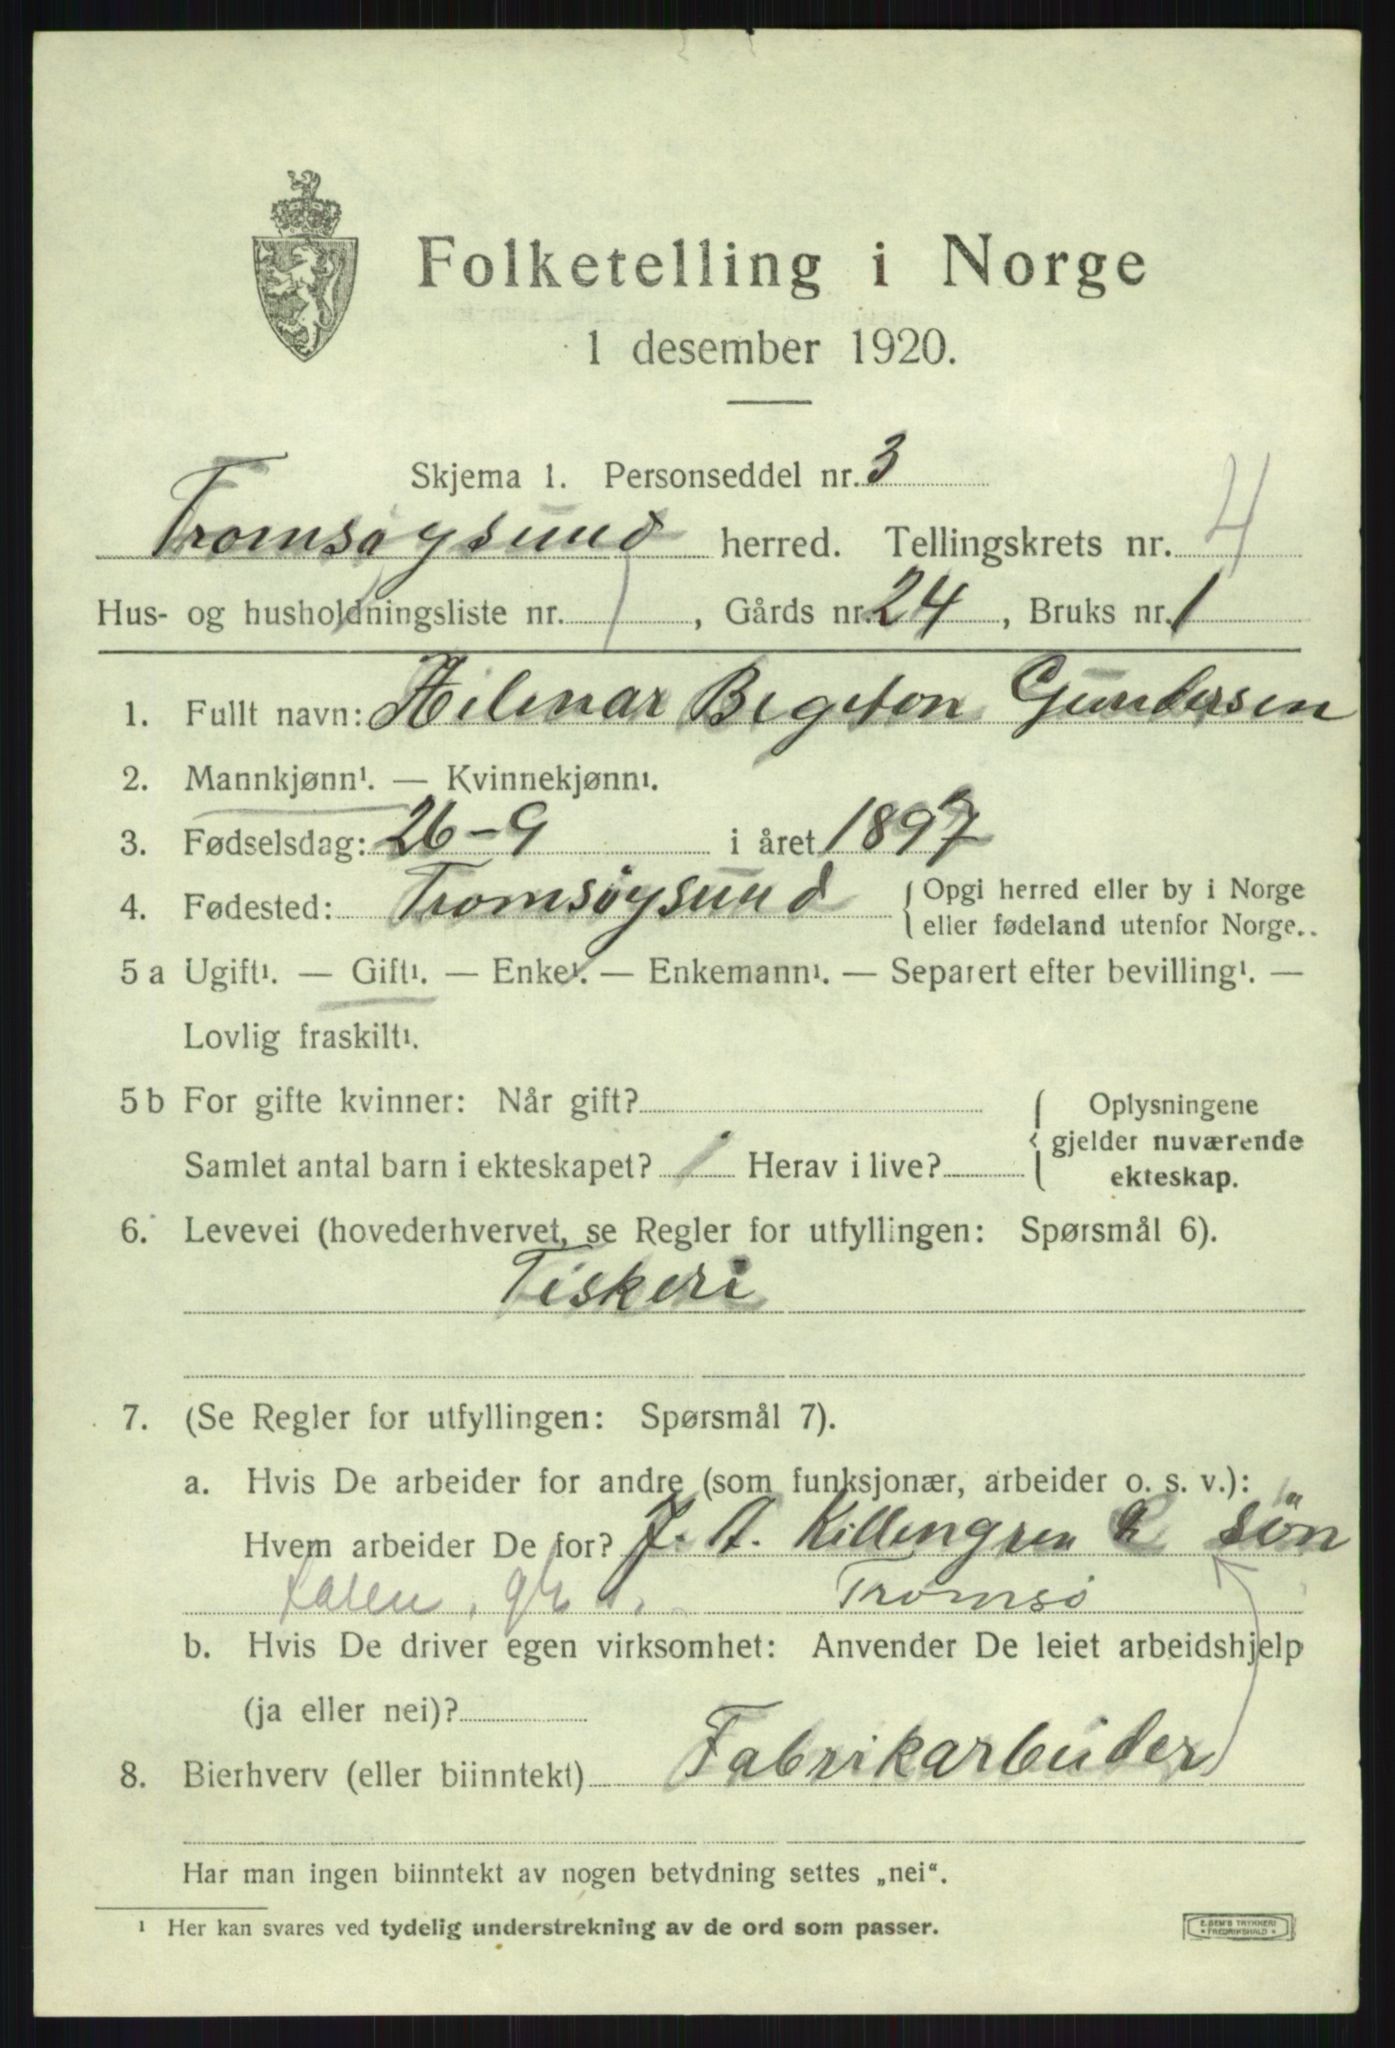 Folketelling i Norge
1 desember 1920.
Skjema 1. Personseddel nr. 3
Tromsøysund herred. Tellingskrets nr. 4
Hus- og husholdningsliste nr. 1, Gårds nr. 24, Bruks nr. 1
1. Fullt navn: Hilmar Begston Gundersen
2. Mannkjønn¹. — Kvinnekjønn¹.
3. Fødselsdag: 26-9 i året 1897
4. Fødested: Tromsøysund { Opgi herred eller by i Norge
eller fødeland utenfor Norge.
5 a Ugift¹. — Gift¹. — Enke¹. — Enkemann¹. — Separert efter bevilling¹. —
Lovlig fraskilt¹.
5 b For gifte kvinner: Når gift? { Oplysningene
gjelder nuværende
Samlet antal barn i ekteskapet? 1 Herav i live? ekteskap.
6. Levevei (hovederhvervet, se Regler for utfyllingen: Spørsmål 6).
Fiskeri
7. (Se Regler for utfyllingen: Spørsmål 7).
a. Hvis De arbeider for andre (som funksjonær, arbeider o. s. v.):
Hvem arbeider De for? J. A. Killengren & søn
Tromsø
b. Hvis De driver egen virksomhet: Anvender De leiet arbeidshjelp
(ja eller nei)?
8. Bierhverv (eller biinntekt) Fabrikarbeider
Har man ingen biinntekt av nogen betydning settes „nei“.
¹ Her kan svares ved tydelig understrekning av de ord som passer.
E. SEM'S TRYKKERI
FREDRIKSHALD